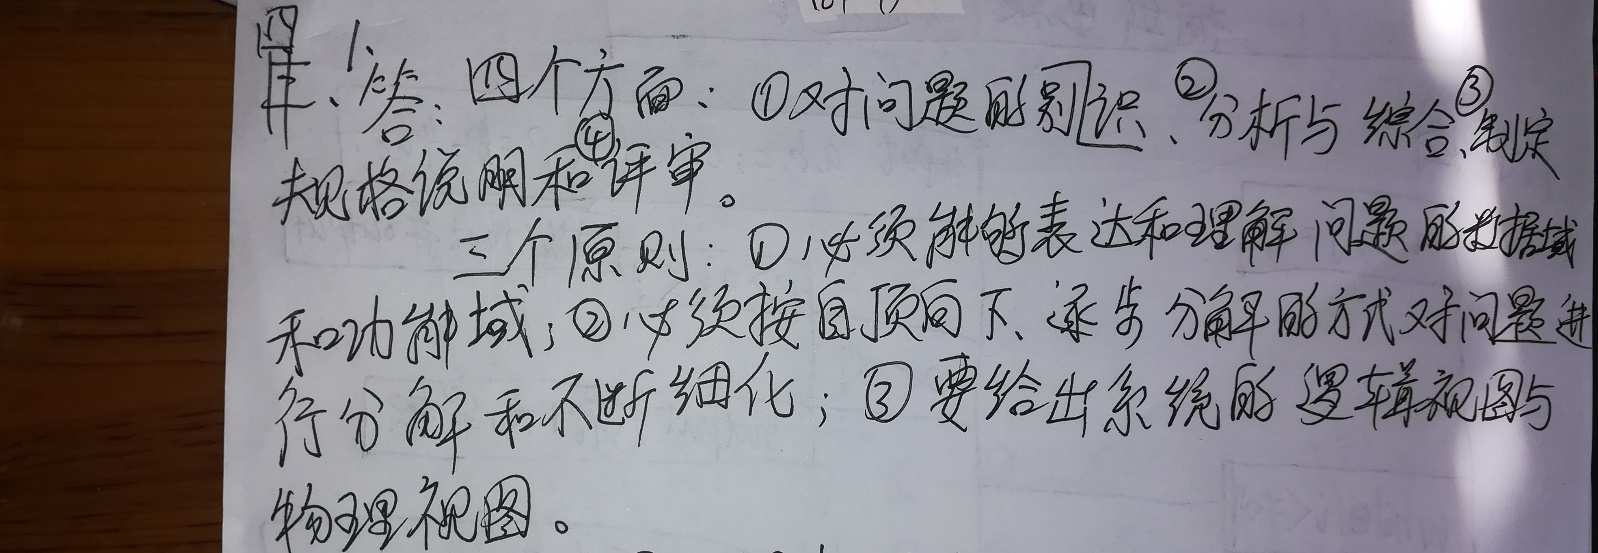 四、1. 答: 四个方面: ①对问题的别识、②分析与综合、③制定
规格说明和④评审。
三个原则: ①必须能够表达和理解问题的数据域
和功能域; ②必须按自顶向下、逐步分解的方式对问题进
行分解和不断细化; ③要给出系统的逻辑视图与
物理视图。